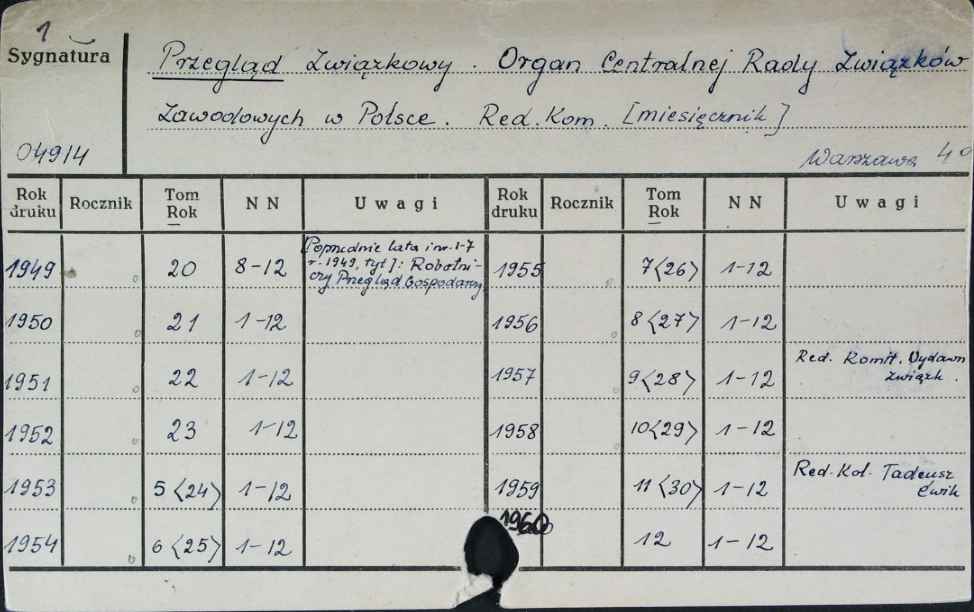 1
Sygnatura
Przegląd Związkowy. Organ Centralnej Rady Związków
Zawodowych w Polsce. Red. Kom. [miesięcznik]
04914
Warszawa 4°
Rok druku Rocznik Tom Rok NN Uwagi Rok druku Rocznik Tom Rok NN Uwagi
1949 20 8-12 [Poprzednie lata i nr. 1-7
r. 1949, tyt]: Robotni-
czy Przegląd Gospodarczy
1955 7<26> 1-12
1950 21 1-12 1956 8<27> 1-12
1951 22 1-12 1957 9<28> 1-12 Red. Komit. Wydawn
Związk.
1952 23 1-12 1958 10<29> 1-12
1953 5<24> 1-12 1959 11<30> 1-12 Red. Kol. Tadeusz
Ćwik
1954 6<25> 1-12 1960 12 1-12